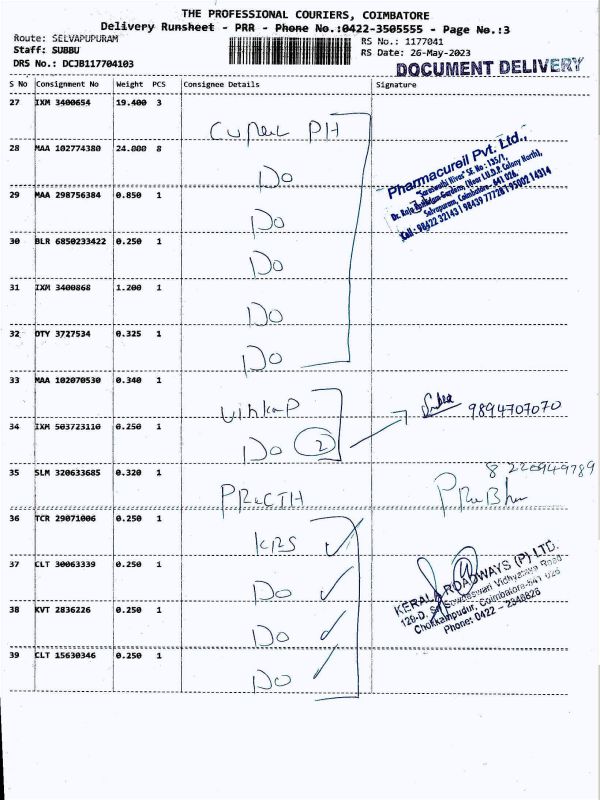 THE PROFESSIONAL COURIERS, COIMBATORE
Delivery Runsheet - PRR - Phone No.:0422-3505555 - Page No.:3
Route: SELVAPUPURAM
RS No.: 1177041
Staff: SUBBU
RS Date: 26-May-2023
DRS No.: DCJB117704103
DOCUMENT DELIVERY
S No Consignment No Weight PCS Consignee Details Signature
27 IXM 3400654 19.400 3
PH
28 MAA 102774380 24.000 8
Do
29 MAA 298756384 0.850 1
Do
30 BLR 6850233422 0.250 1
Do
31 IXM 3400868 1.200 1
Do
32 DTY 3727534 0.325 1
Do
Pharmacureil Pvt. Ltd.,
"Saraswathi Nivas" SF. No : 135/1,
Selvapuram, Coimbatore- 641 026.
Kall : 98422 32143 | 98439 77728 | 95002 14314
33 MAA 102070530 0.340 1
9894707070
34 IXM 503723110 0.250 1
Do 2
35 SLM 320633685 0.320 1
8220949789
PRICITH
36 TCR 29071006 0.250 1
KRS
37 CLT 30063339 0.250 1
Do
38 KVT 2836226 0.250 1
Do
39 CLT 15630346 0.250 1
Do
KERALA ROADWAYS (P) LTD.
Chokkampudur, Coimbatore-641 026
Phone: 0422 - 2348826